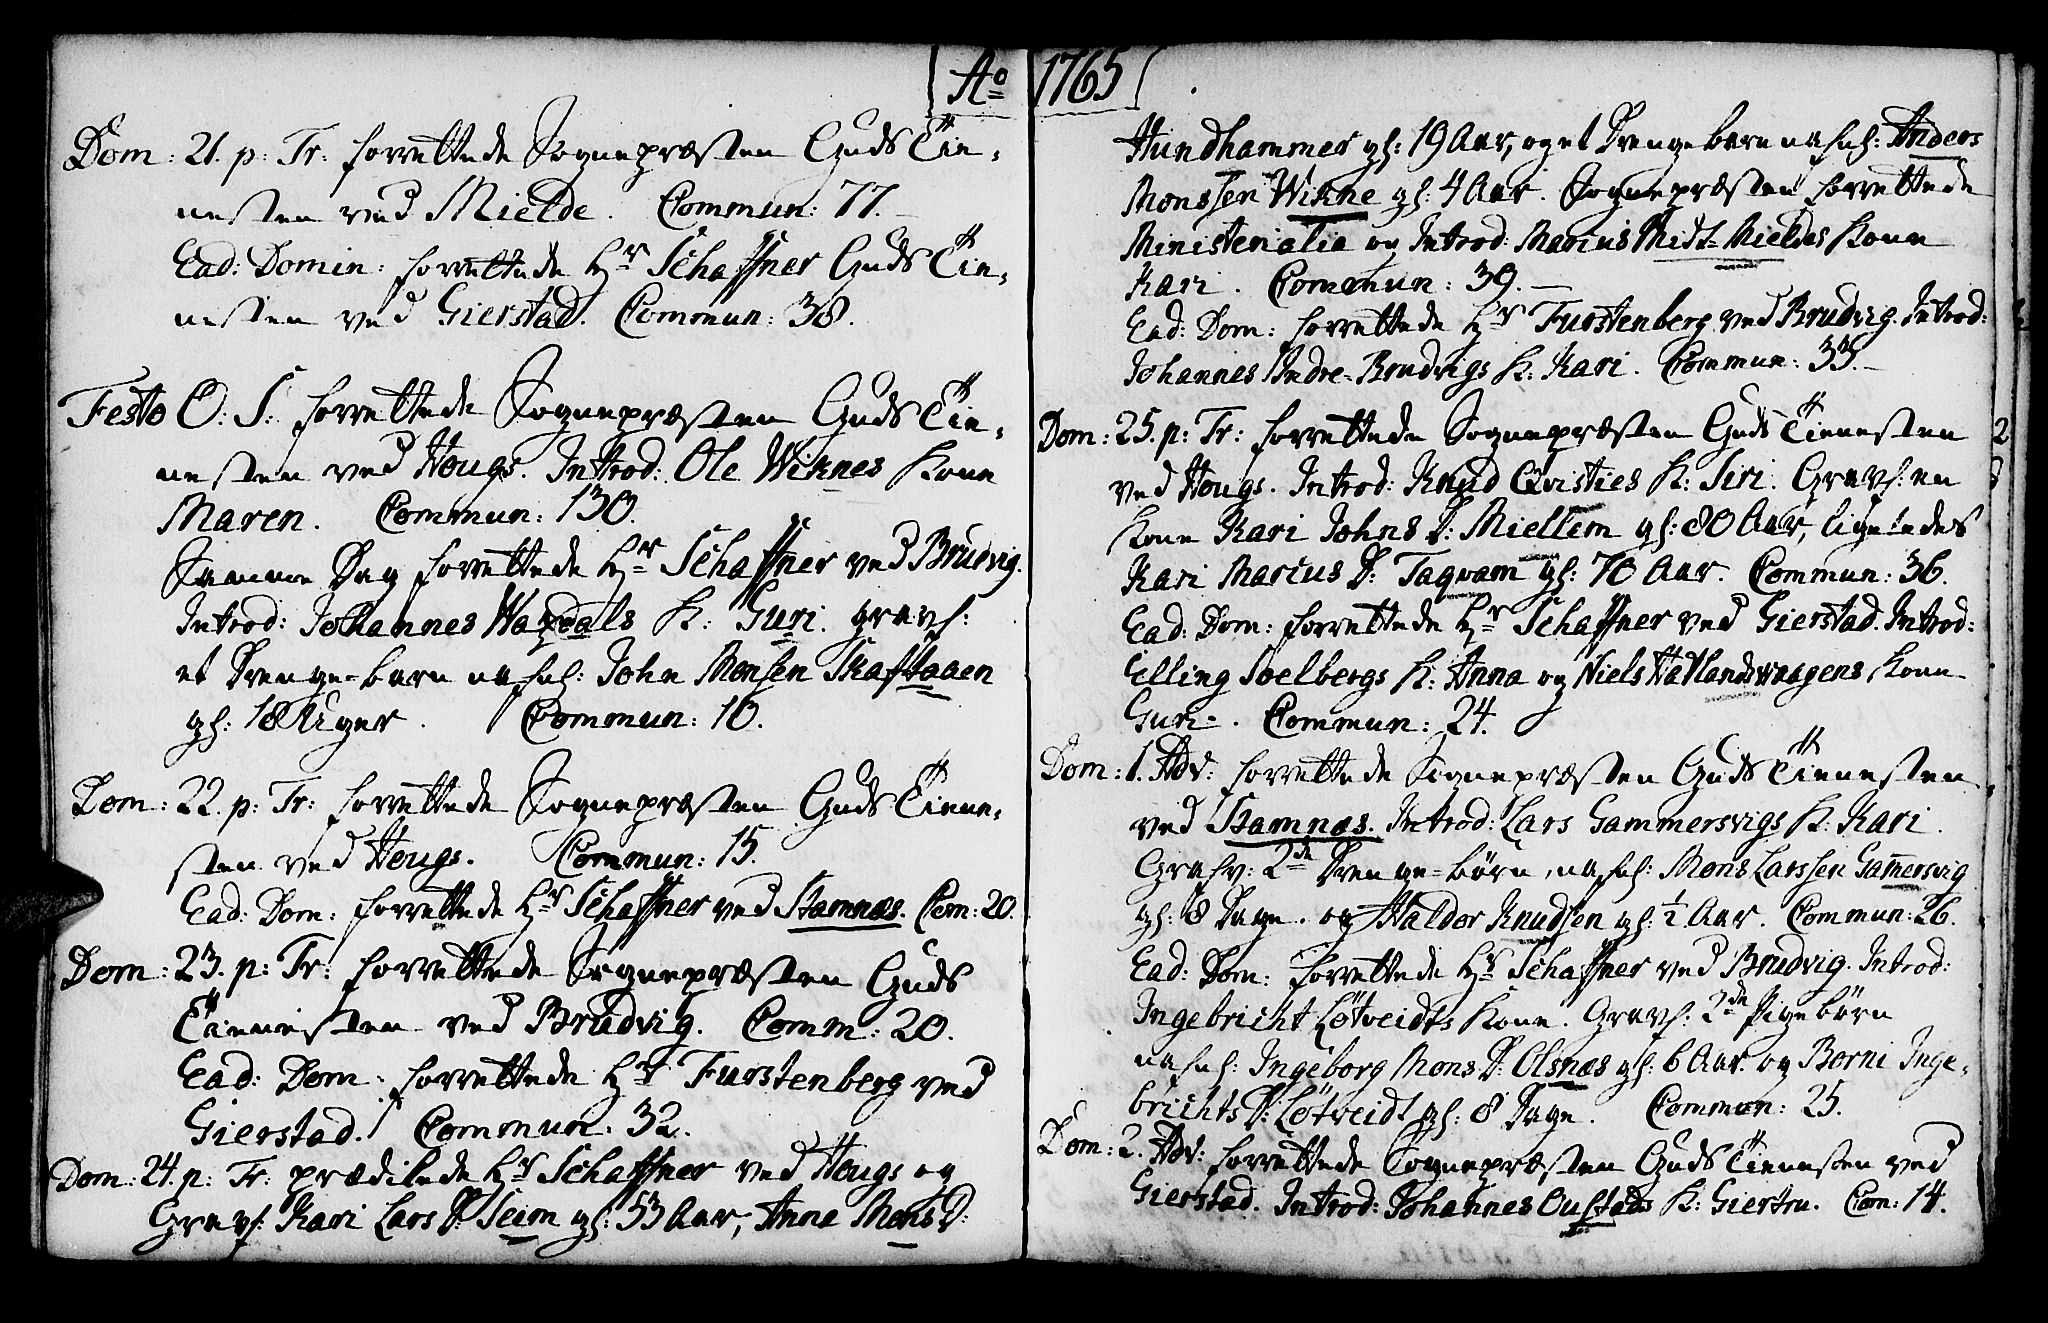 Ao 1765
Dom: 21. p: Tr: forrettede Sognepræsten Guds Tie-
nesten ved Mielde. Commun: 77.
Ead: Domin: forrettede Hr Schaffner Guds Tie-
nesten ved Gierstad. Commun: 38.
Festo O: S: forrettede Sognepræsten Guds Tie-
nesten ved Hougs. Introd: Ole Wiknes Kone
Maren. Commun: 130.
Samme Dag forrettede Hr Schaffner ved Brudvig.
Introd: Johannes Waxdals K: Guri. gravf:
et Drenge-barn nafnl: John Monsen Skaftaaen
gl: 18 Uger. Commun: 10.
Dom: 22. p: Tr: forrettede Sognepræsten Guds Tiene-
sten ved Hougs. Commun: 15.
Ead: Dom: forrettede Hr Schaffner ved Stamnæs. Com: 20.
Dom: 23. p: Tr: forrettede Sognepræsten Guds
Tienesten ved Brudvig. Comm: 20.
Ead: Dom: forrettede Hr Furstenberg ved
Gierstad. Commun: 32.
Dom: 24. p: Tr: prædikede Hr Schaffner ved Hougs og
Gravf: Kari Lars D: Seim gl: 53 Aar, Anna Mons D:
Hundhammer gl: 19 Aar, og et Drenge barn nafnl: Anders
Monssen Wikne gl: 4 Aar. Sognepræsten forrettede
Ministerialia og Introd: Marius Midt-Mieldes Kone
Kari. Commun: 39.
Ead: Dom: forrettede Hr Furstenberg ved Brudvig. Introd:
Johannes Indre-Brudvigs K: Kari. Commun: 33.
Dom: 25. p: Tr: forrettede Sognepræsten Guds Tienesten
ved Hougs. Introd: Knud Qvisties K: Siri. Gravf: en
Kone Kari Johns D: Miellem gl: 80 Aar, ligeledes
Kari Marius D: Taqvam gl: 70 Aar. Commun: 36.
Ead: Dom: forrettede Hr Schaffner ved Gierstad. Introd:
Elling Soelbergs K: Anna og Niels Hatlandsvaagens Kone
Guri. Commun: 24.
Dom: 1. Adv: forrettede Sognepræsten Guds Tienesten
ved Stamnæs. Introd: Lars Gammersvigs K: Kari.
Grafv: 2de Drenge-börn, nafnl: Mons Larssen Gamersvig
gl: 8 Dage. og Haldor Knudsen gl: 1/2 Aar. Commun: 26.
Ead: Dom: forrettede Hr Schaffner ved Brudvig. Introd:
Ingebricht Lötveidts Kone. Gravf: 2de Pigebörn
nafnl: Ingeborg Mons D: Olsnæs gl: 6 Aar. og Borni Inge-
brichts D: Lötveidt gl: 8 Dage. Commun: 25.
Dom: 2. Adv: forrettede Sognepræsten Guds Tienesten ved
Gierstad. Introd: Johannes Oustads K: Giertru. Com: 14.